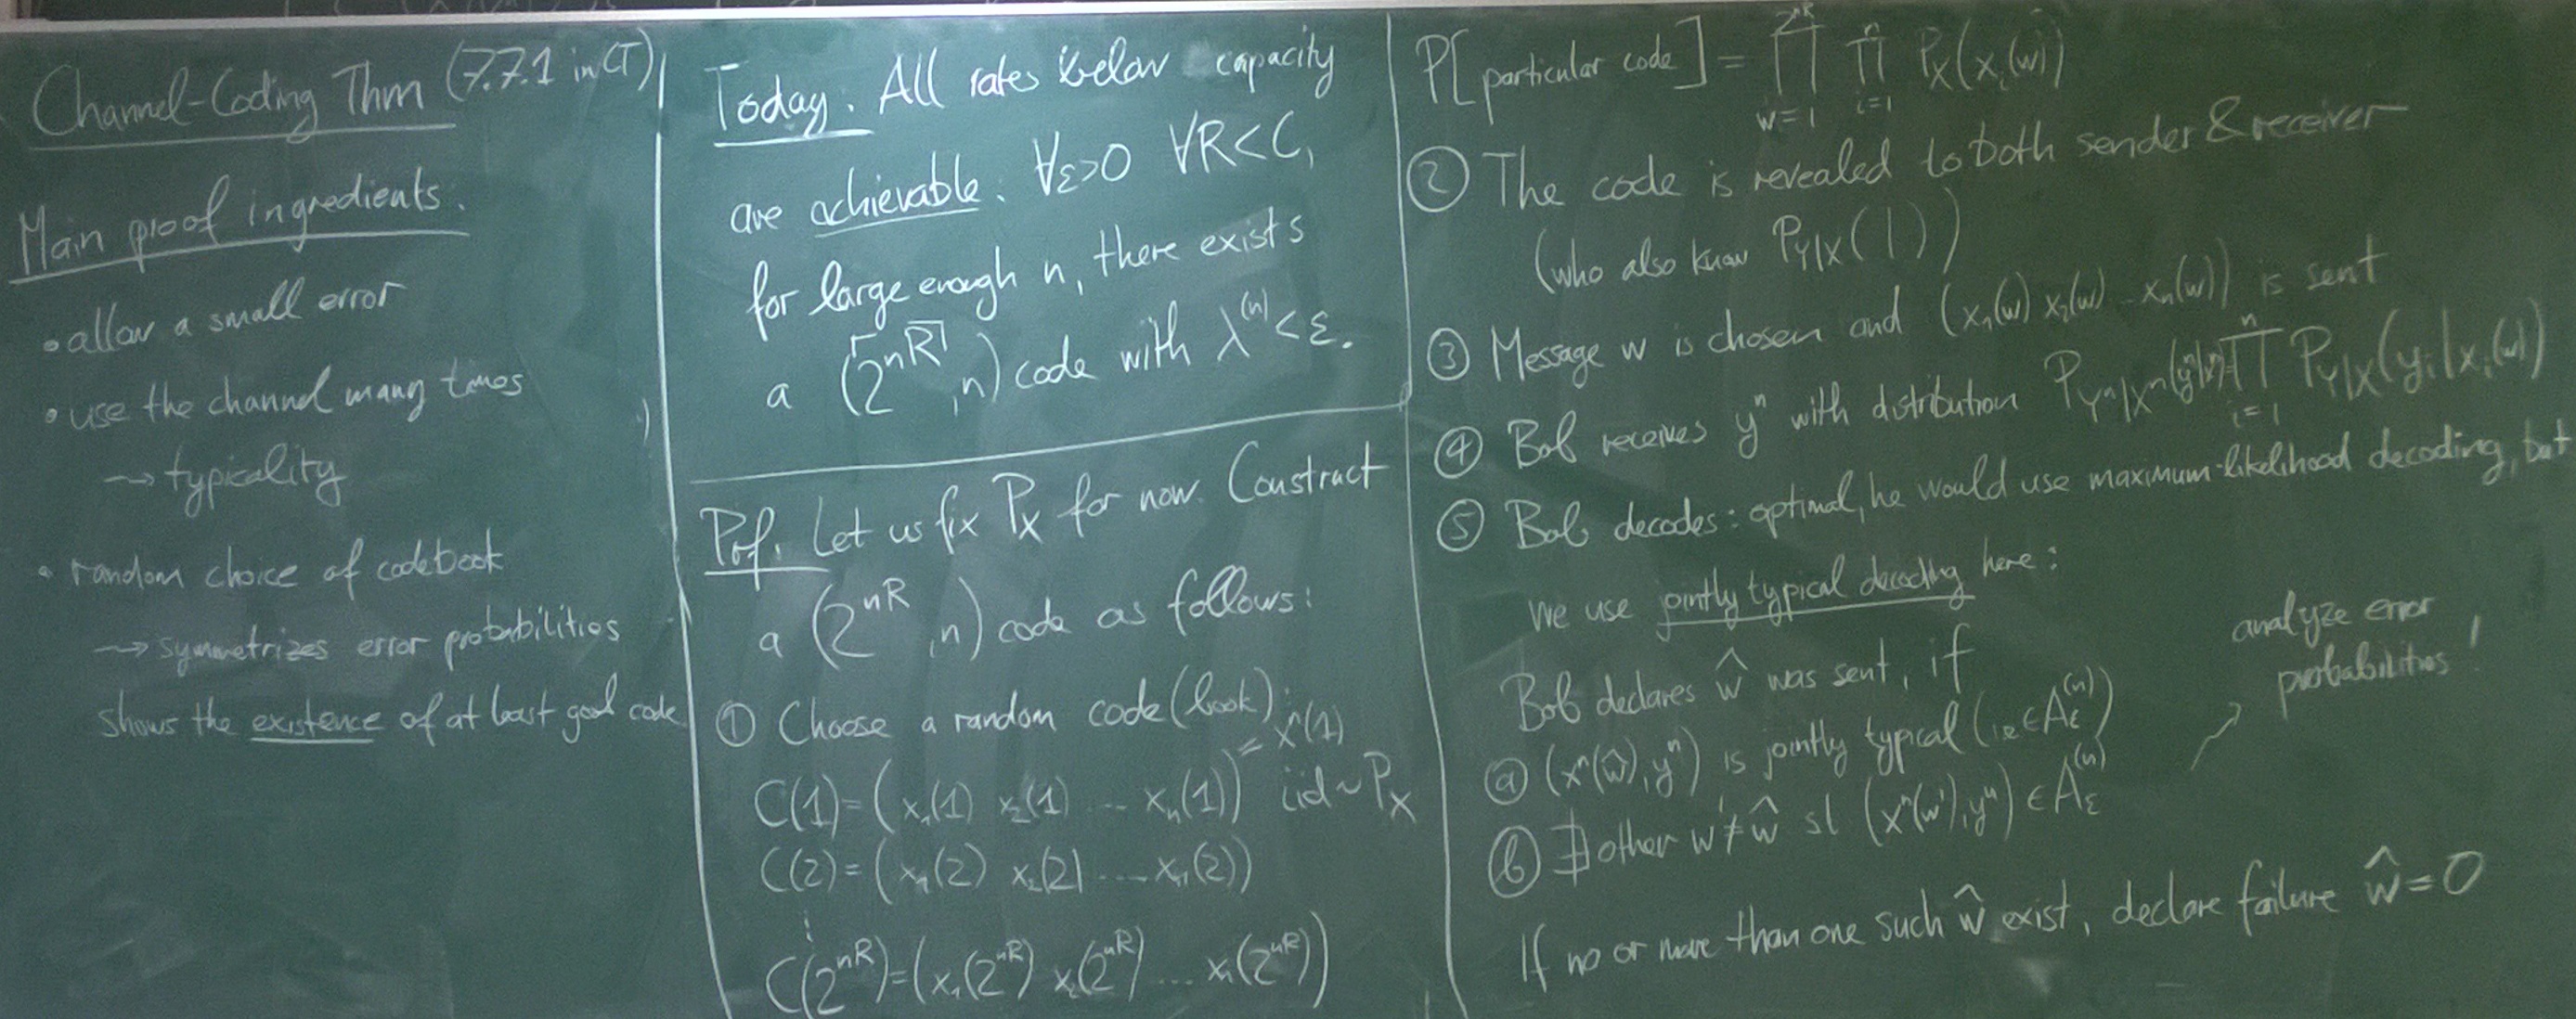 Channel-Coding Thm (7.7.1 in CT)
Main proof ingredients.
• allow a small error
• use the channel many times
⇝ typicality
• random choice of codebook
⇝ symmetrizes error probabilities
shows the existence of at least good code
Today: All rates below capacity
are achievable: ∀ε>0 ∀R<C,
for large enough n, there exists
a (2^⌈nR⌉, n) code with λ^(n) < ε.
Prf. Let us fix P_X for now. Construct
a (2^nR, n) code as follows:
① Choose a random code(book):
C(1) = (x₁(1) x₂(1) ... xₙ(1)) = xⁿ(1) iid ~ P_X
C(2) = (x₁(2) x₂(2) ... xₙ(2))
⋮
C(2^nR) = (x₁(2^nR) x₂(2^nR) ... xₙ(2^nR))
P[particular code] = ∏_{w=1}^{2^nR} ∏_{i=1}^{n} P_X(x_i(w))
② The code is revealed to both sender & receiver
(who also know P_{Y|X}( | ))
③ Message w is chosen and (x₁(w) x₂(w) ... xₙ(w)) is sent
④ Bob receives yⁿ with distribution P_{Yⁿ|Xⁿ}(yⁿ|xⁿ) = ∏_{i=1}^{n} P_{Y|X}(y_i|x_i(w))
⑤ Bob decodes: optimal, he would use maximum-likelihood decoding, but
we use jointly typical decoding here:
Bob declares ŵ was sent, if
ⓐ (xⁿ(ŵ), yⁿ) is jointly typical (i.e ∈ A_ε^(n))
ⓑ ∄ other w' ≠ ŵ st (xⁿ(w'), yⁿ) ∈ A_ε^(n)
If no or more than one such ŵ exist, declare failure ŵ = 0
↗ analyze error
probabilities!